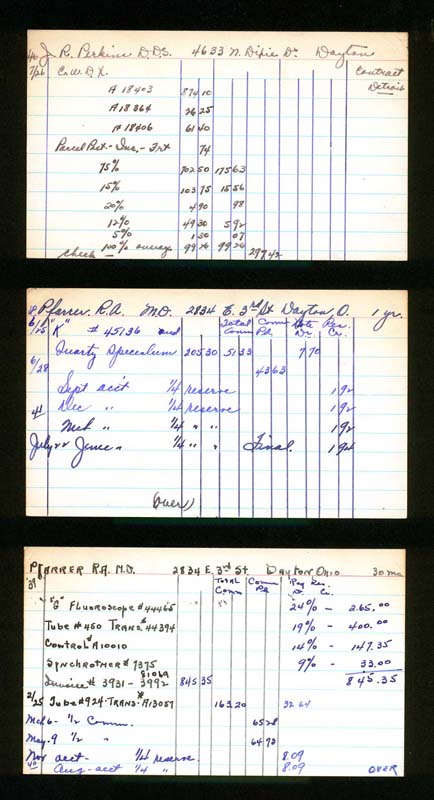 46 J. R. Perkins D.D.S. 4633 N. Dixie Dr. Dayton
7/26 C.W.D.X. Contract Detroit
A 18403 874 10
A 18364 26 25
A 18406 61 40
Parcel Post - Ins. - Frt 74
75% 702 50 175 63
15% 103 75 15 56
20% 4 90 98
12% 49 30 5 92
5% 1 50 07
100% overage 99 26 99 26
Check 297 42
Pfarrer. R.A. M.D. 2834 E. 3rd St Dayton, O. 1 yr.
Total Comm Comm Pd Note Dr. Res. Cr.
6/15 "K" # 45136 and
Quartz Speculum 205 30 51 33 7 70
6/28 43 63
Sept acc't 1/4 reserve 1 92
Dec " 1/4 reserve 1 92
Mch " 1/4 " " 1 92
July 22 June " 1/4 " " Final. 1 94
(over)
PFARRER R.A. M.D. 2834 E. 3rd St. DAYTON OHIO 30 ma
39 Total Comm Comm Pd Pay Dr. Res. Cr.
"G" FLUOROSCOPE # 44465 24% - 265.00
TUBE #450 TRANS # 44394 19% - 400.00
CONTROL # A10010 14% - 147.35
SYNCHROTMER # 7375 9% - 33.00
81069
Invoice # 3931 - 3992 845 35 845.35
2/25 TUBE #924 - TRANS - # A13057 163.20 32 64
Mch 6 - 1/2 Comm. 65 28
May. 9 1/2 " 64 73
Nov acct - 1/4 reserve. 8.09
40 Aug - acct 1/4 " 8.09 OVER